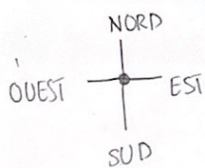 NORD
OUEST
EST
SUD